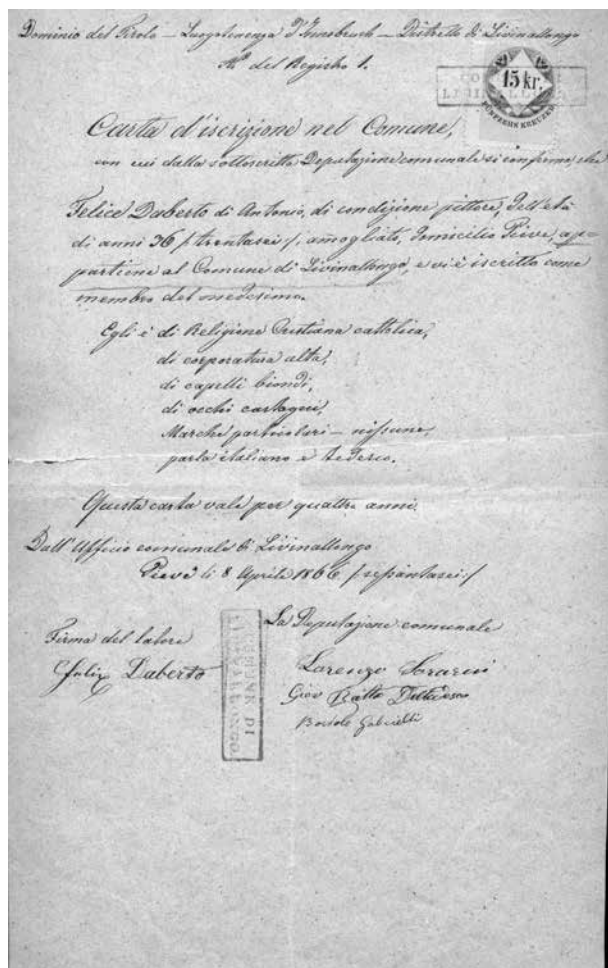 Dominio del Tirolo – Luogotenenza d'Innsbruck – Distretto di Livinallongo
N.º del Registro 1.
COMUNE DI
LIVINALLONGO
15 kr.
FÜNFZEHN KREUZER
Carta d'iscrizione nel Comune,
con cui dalla sottoscritta Deputazione comunale si conferma, che
Felice Daberto di Antonio, di condizione pittore, dell'età
di anni 36 /: trentasei :/, amogliato, domicilio Pieve, ap=
partiene al Comune di Livinallongo, e vi è iscritto come
membro del medesimo.
Egli è di Religione Cristiana cattolica,
di corporatura alta,
di capelli biondi,
di occhi castagni,
Marche particolari – nissune,
parla italiano e tedesco.
Questa carta vale per quattro anni.
Dall'Ufficio comunale di Livinallongo
Pieve li 8 Aprile 1866 /: sessantasei :/
La Deputazione comunale
Firma del latore
Felix Daberto
COMUNE DI
LIVINALLONGO
Lorenzo
Giov
Gabrielli